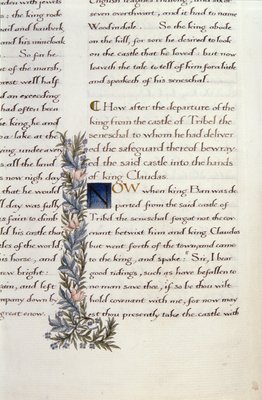 rod and hauberk
and his
So far he
t of the marsh,
rest well half
d an exceeding
had often been
ke king, he and
a lake at the
ying under
s all the land
as now nigh day
t that he would
l day was fully
s faire to climb
ld his castle tha
tles of the world,
is horse, and
ew bright:
am, and left
mpany down by
great enow.
English leagues and six
seven overthwart, and it hard to name
So the king abode
on the hill, for sore he desired to look
on the castle that he loved: but now
leaveth the tale to tell of him for a while
and speaketh of his seneschal.
How after the departure of the
king from the castle of Tribel the
seneschal to whom he had deliver
ed the safeguard thereof bewray
ed the said castle into the hands
of king Claudas.
NOW when king Ban was de
parted from the said castle of
Tribel the seneschal forgat not the cov
enant betwixt him and king Claudas
but went forth of the town and came
to the king, and spake: Sir, I bear
good tidings, such as have befallen to
no man save thee, if so be thou wilt
hold covenant with me, for now may
est thou presently take the castle with